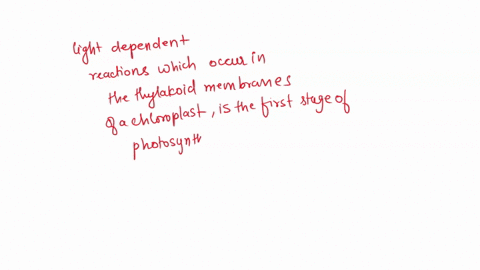 light dependent
reactions which occur in
the thylakoid membranes
of a chloroplast, is the first stage of
photosynth